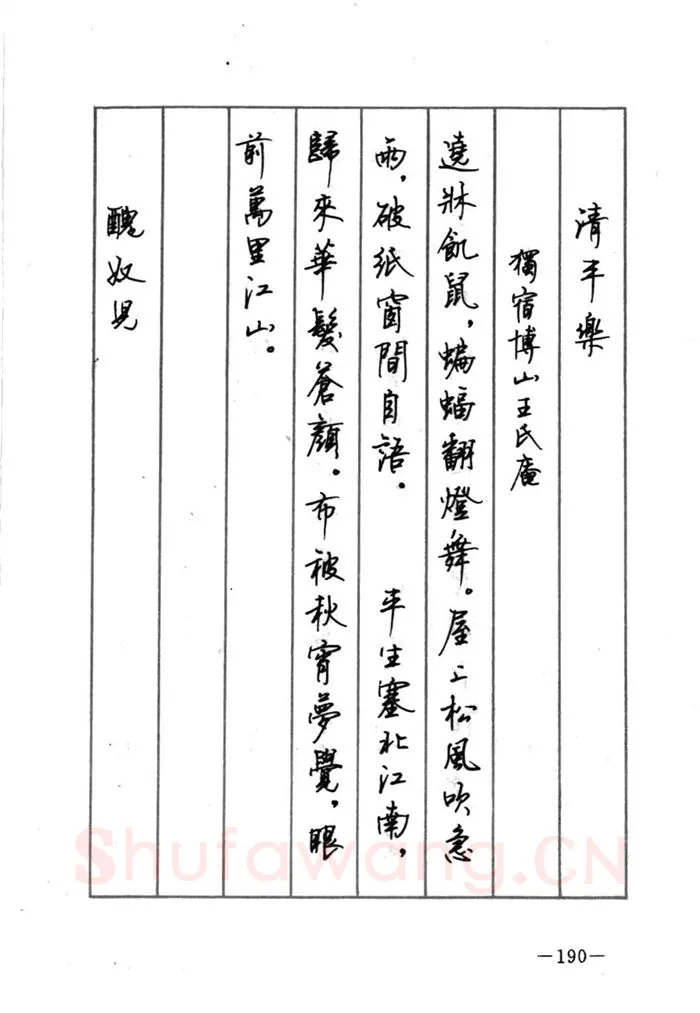 清平樂
獨宿博山王氏庵
遶牀飢鼠，蝙蝠翻燈舞。屋上松風吹急
雨，破紙窗間自語。 平生塞北江南，
歸來華髮蒼顏。布被秋宵夢覺，眼
前萬里江山。
醜奴兒
Shufawang.CN
—190—